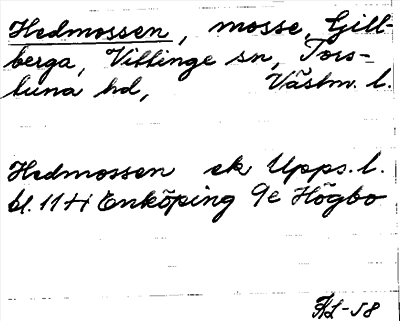 Hedmossen, mosse, Gill-
berga, Villinge sn, Tors-
luna hd, Västm. l.
Hedmossen ek Upps. l.
bl. 11 H Enköping 9e Högbo
HL-58